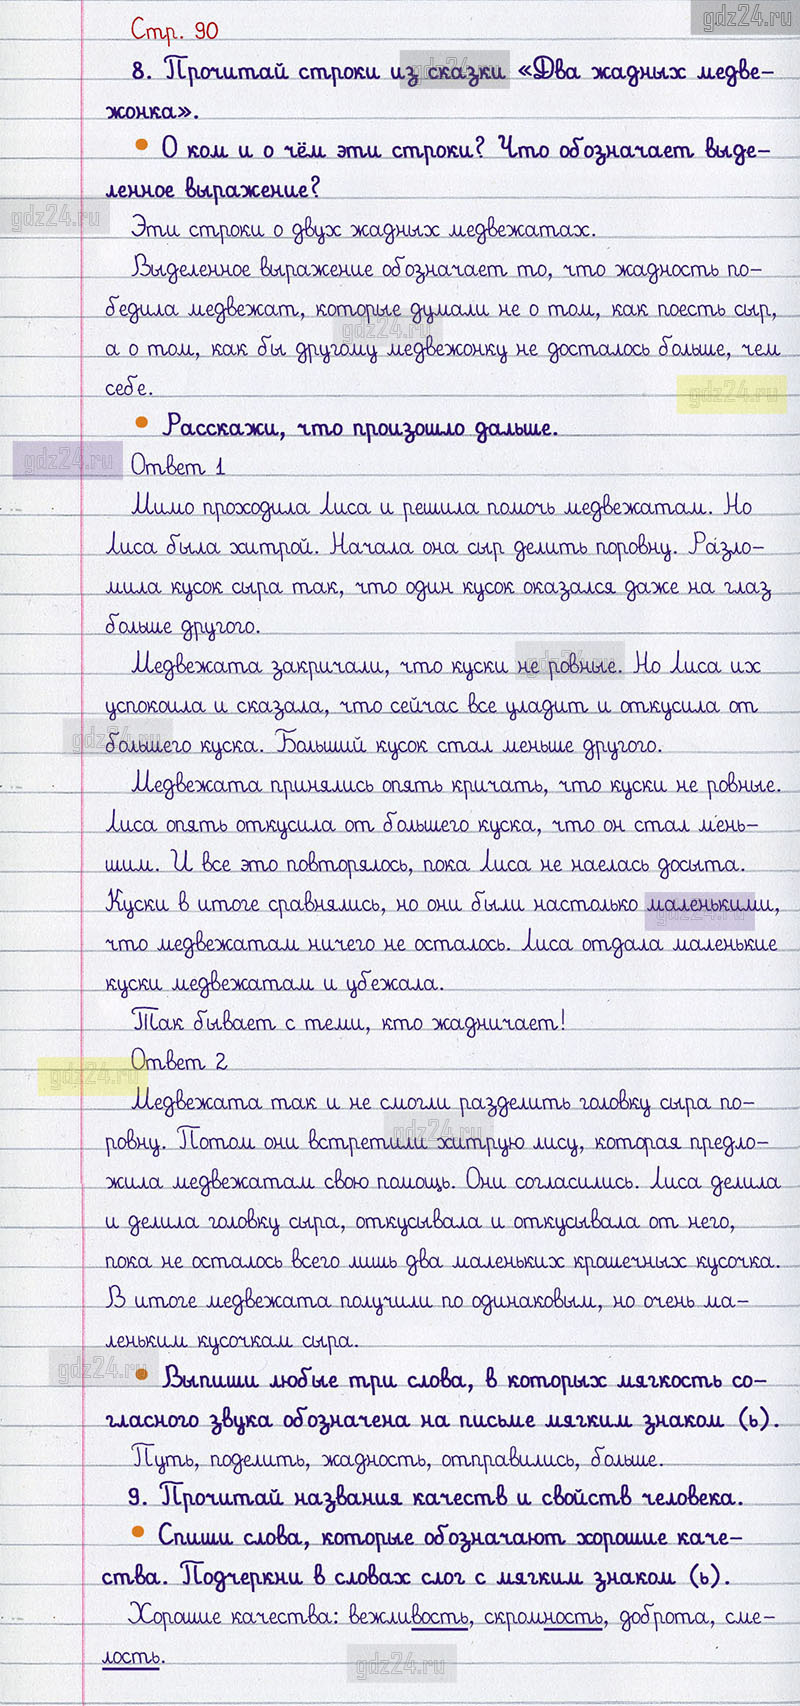 gdz24.ru
Стр. 90
8. Прочитай строки из сказки «Два жадных медве-
gdz24.ru
жонка».
О ком и о чём эти строки? Что обозначает выде-
ленное выражение?
gdz24.ru
Эти строки о двух жадных медвежатах.
Выделенное выражение обозначает то, что жадность по-
бедила медвежат, которые думали не о том, как поесть сыр,
gdz24.ru
а о том, как бы другому медвежонку не досталось больше, чем
себе.
gdz24.ru
Расскажи, что произошло дальше.
gdz24.ru
Ответ 1
Мимо проходила Лиса и решила помочь медвежатам. Но
Лиса была хитрой. Начала она сыр делить поровну. Разло-
мила кусок сыра так, что один кусок оказался даже на глаз
больше другого.
Медвежата закричали, что куски не ровные. Но Лиса их
gdz24.ru
успокоила и сказала, что сейчас все уладит и откусила от
большего куска. Больший кусок стал меньше другого.
gdz24.ru
Медвежата принялись опять кричать, что куски не ровные.
Лиса опять откусила от большего куска, что он стал мень-
шим. И все это повторялось, пока Лиса не наелась досыта.
Куски в итоге сравнялись, но они были настолько маленькими,
gdz24.ru
что медвежатам ничего не осталось. Лиса отдала маленькие
куски медвежатам и убежала.
Так бывает с теми, кто жадничает!
Ответ 2
gdz24.ru
Медвежата так и не смогли разделить головку сыра по-
gdz24.ru
ровну. Потом они встретили хитрую лису, которая предло-
жила медвежатам свою помощь. Они согласились. Лиса делила
и делила головку сыра, откусывала и откусывала от него,
пока не осталось всего лишь два маленьких крошечных кусочка.
В итоге медвежата получили по одинаковым, но очень ма-
леньким кусочкам сыра.
gdz24.ru
Выпиши любые три слова, в которых мягкость со-
гласного звука обозначена на письме мягким знаком (ь).
Путь, поделить, жадность, отправились, больше.
9. Прочитай названия качеств и свойств человека.
Спиши слова, которые обозначают хорошие каче-
ства. Подчеркни в словах слог с мягким знаком (ь).
Хорошие качества: вежливость, скромность, доброта, сме-
лость.
gdz24.ru